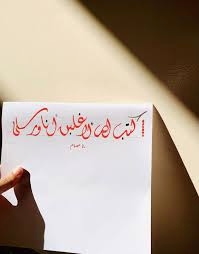 كتب الله لأغلبن أنا ورسلي